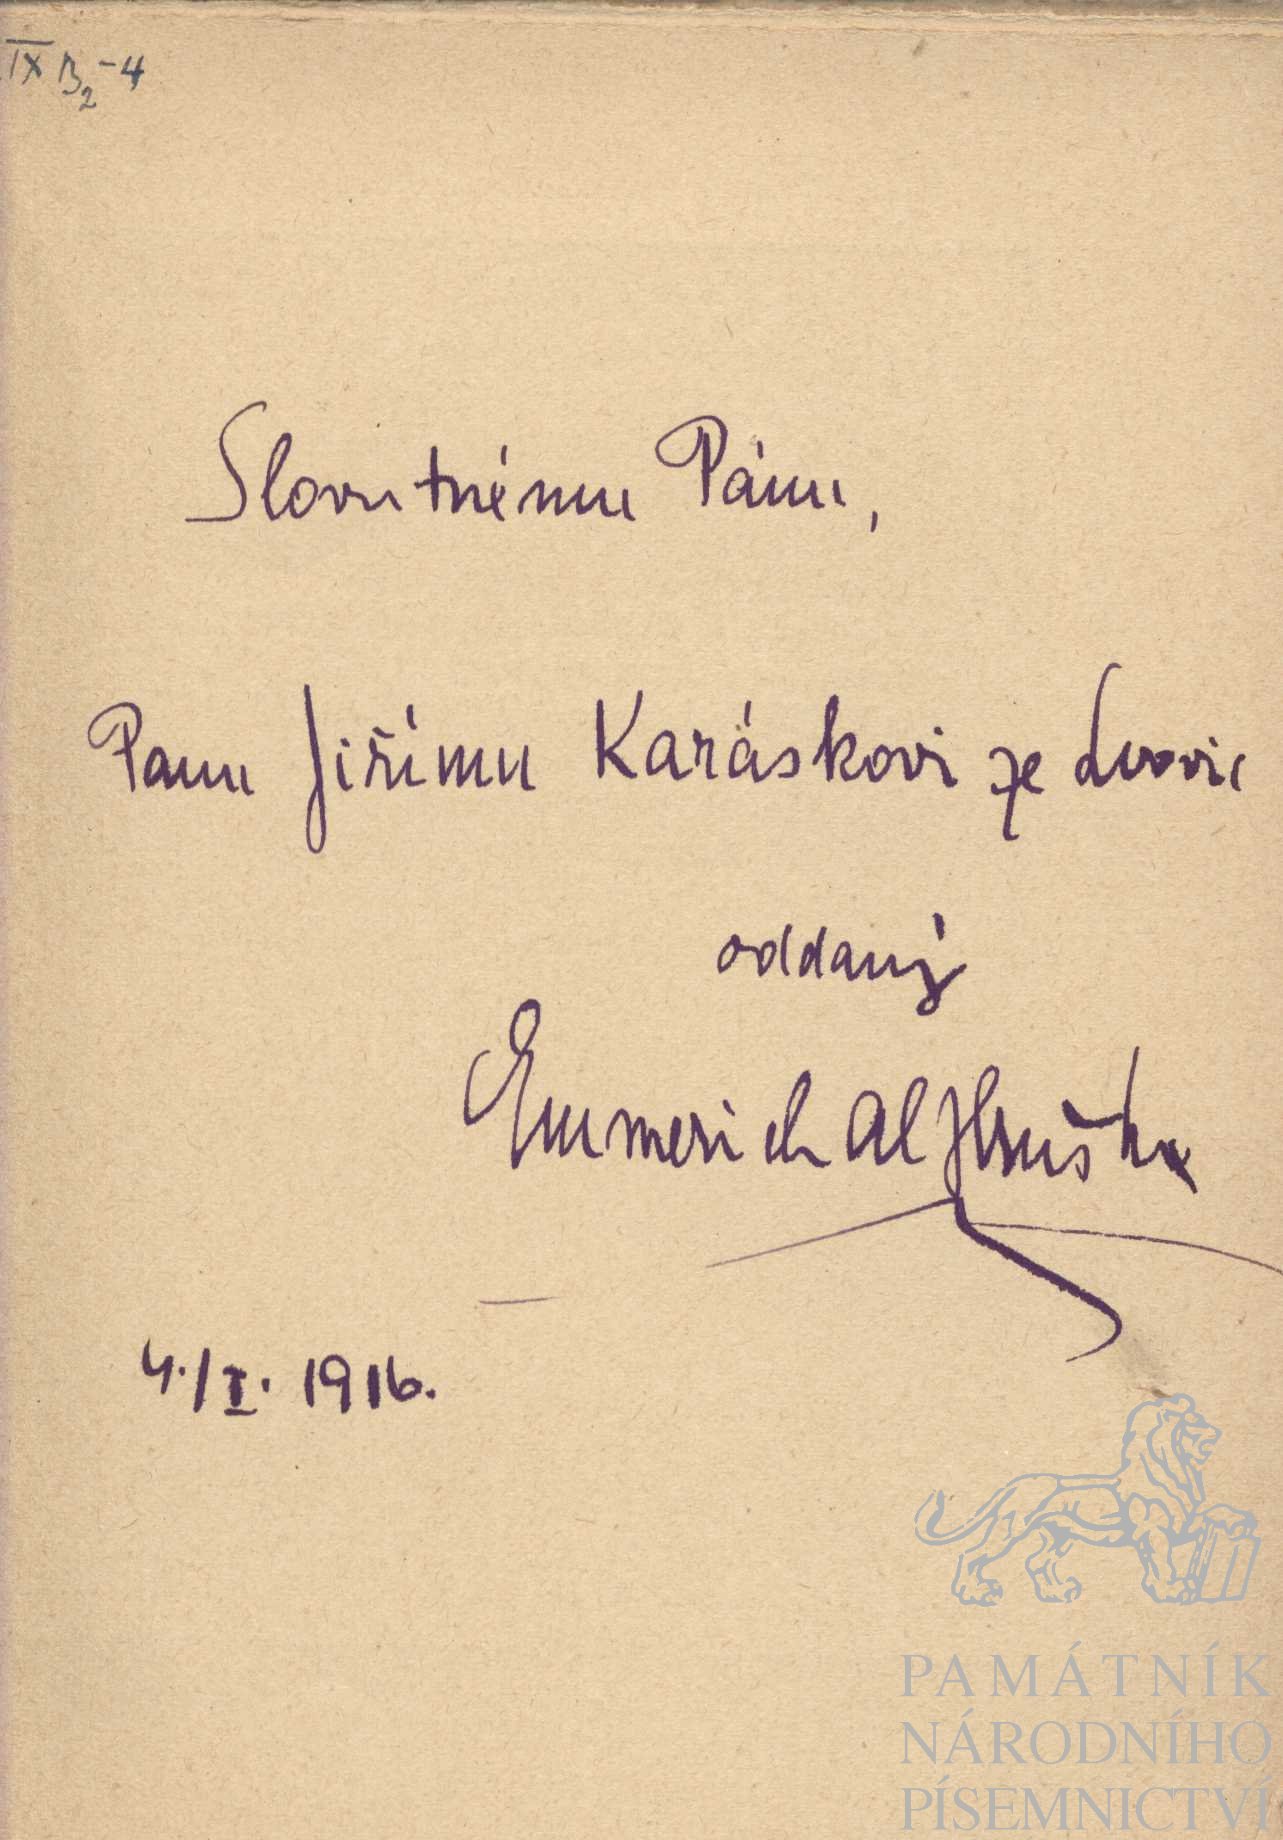 IX B2-4
Slovutnému Pánu,
Panu Jiřímu Karáskovi ze Lvovic
oddaný
Emmerich Al Hruška
4./I. 1916.
PAMÁTNÍK
NÁRODNÍHO
PÍSEMNICTVÍ